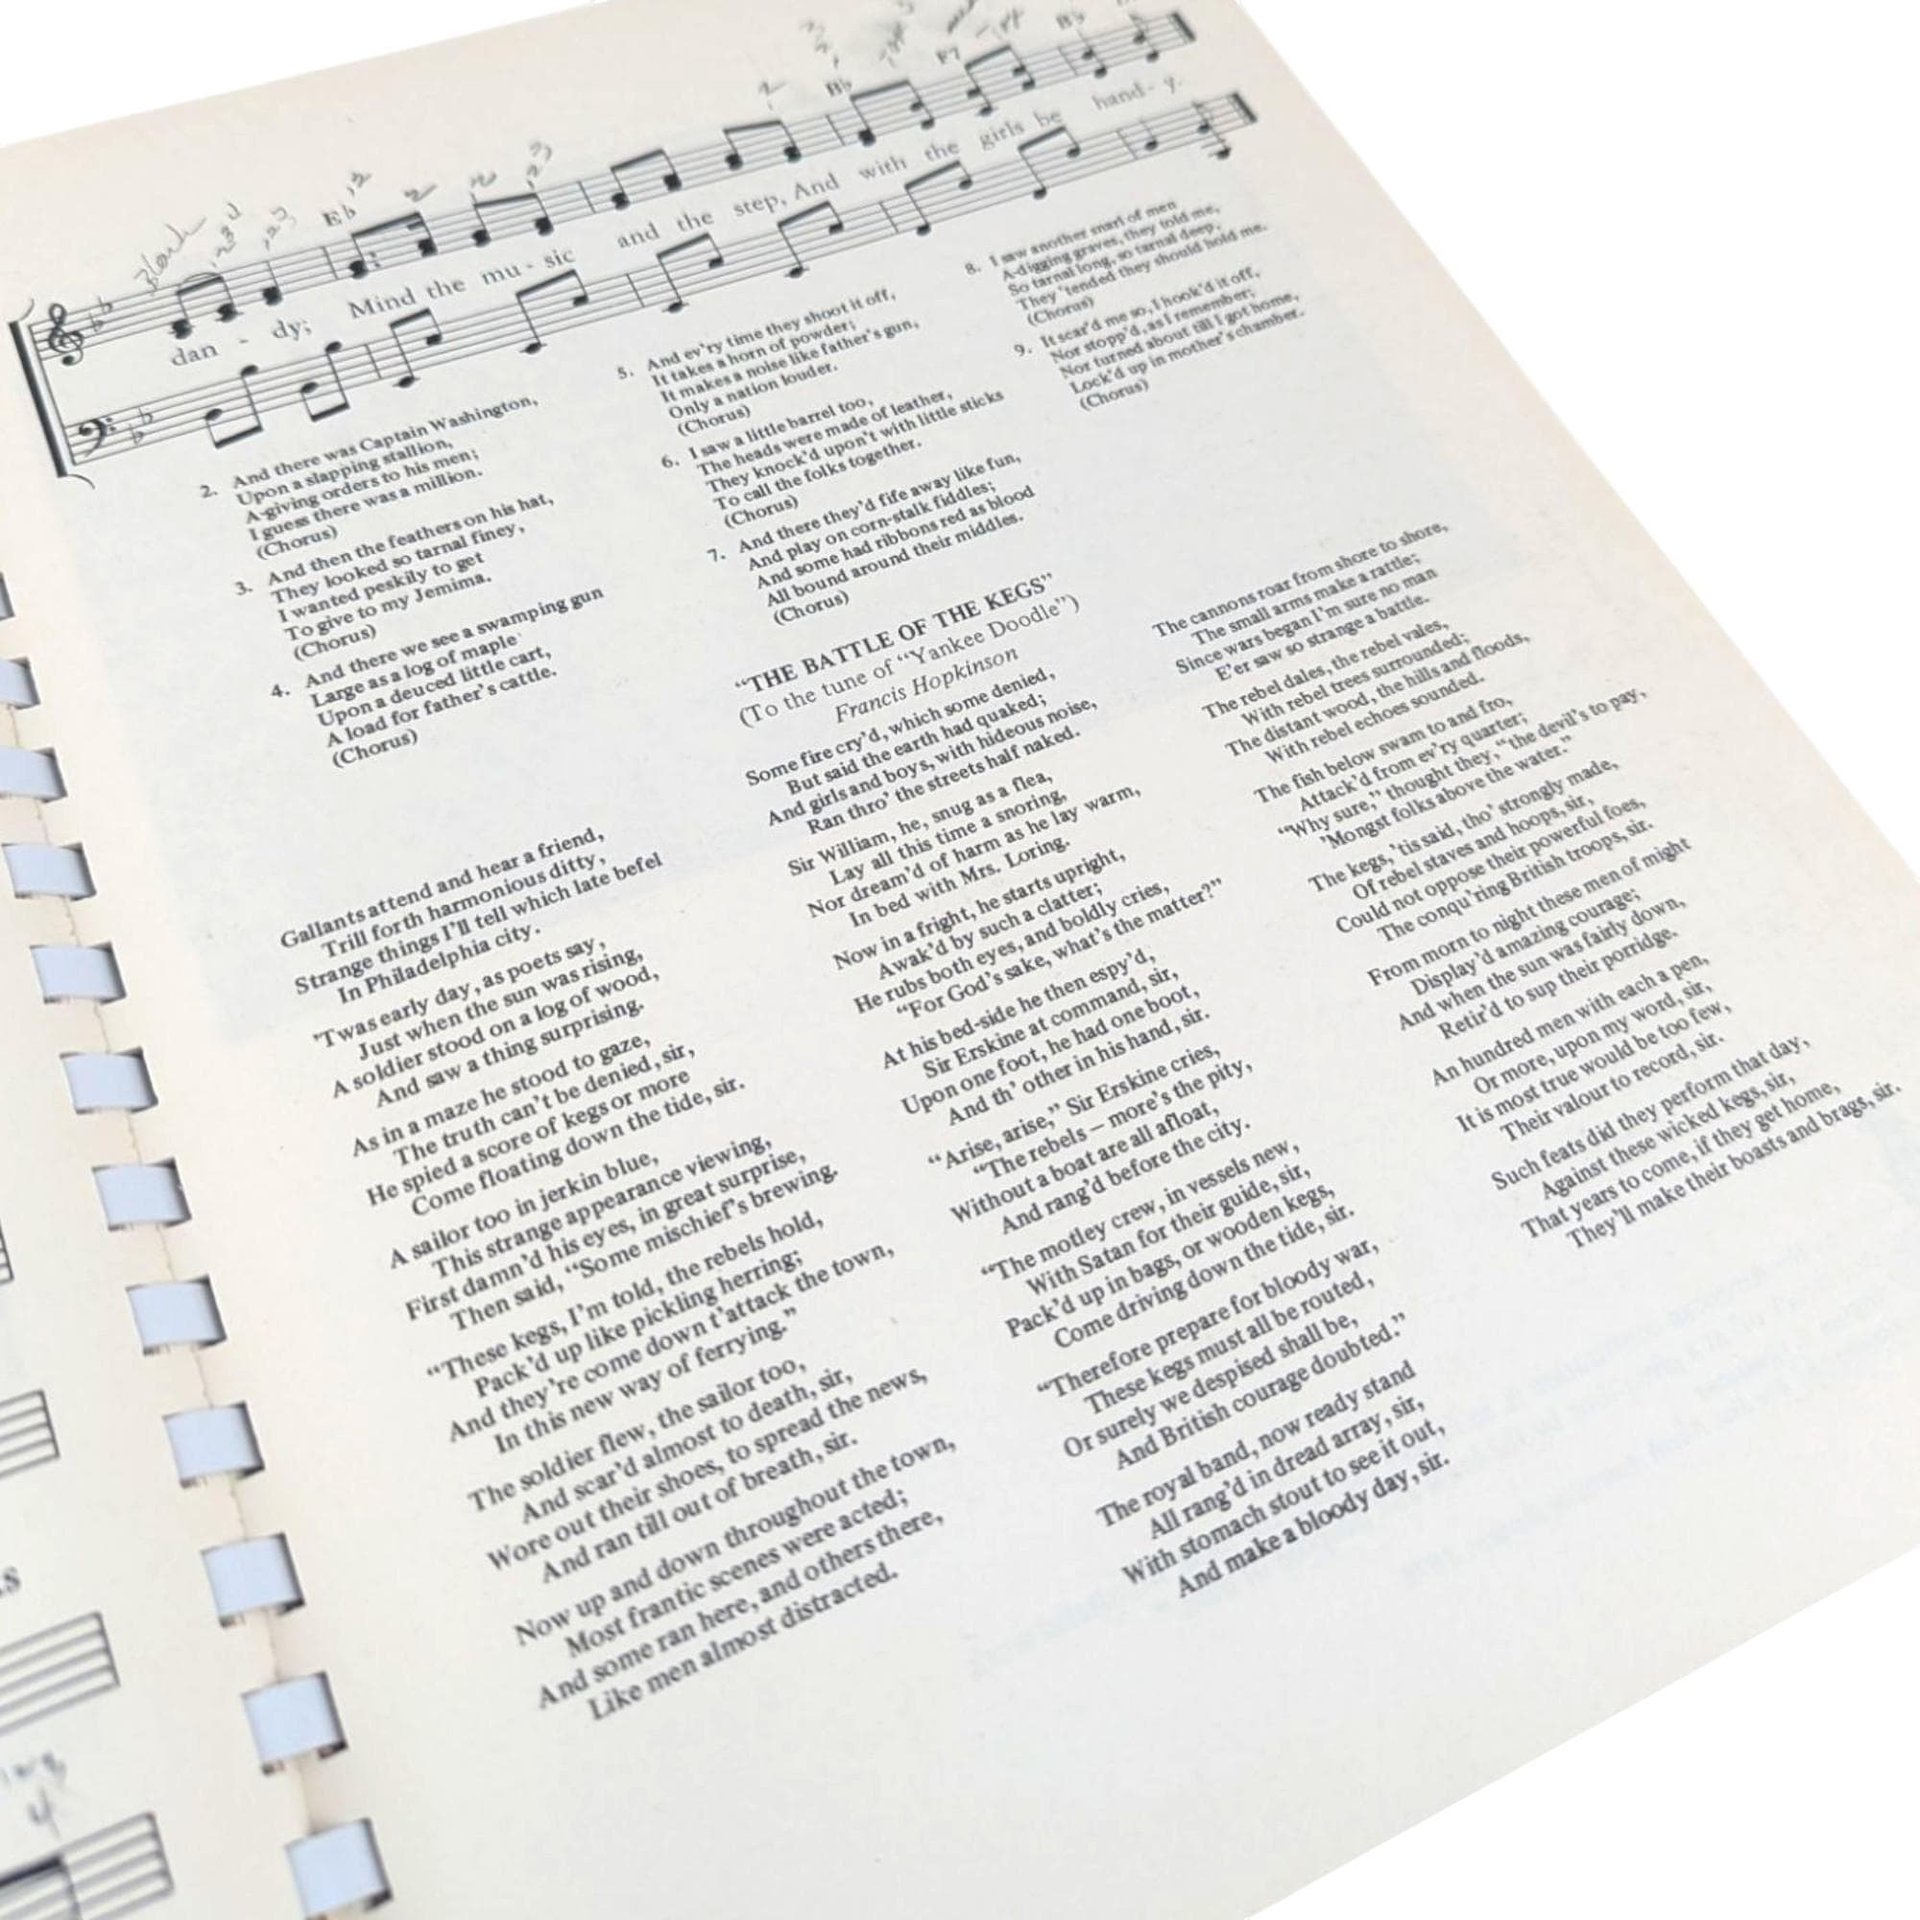 Black
Eb
2
2
Bb
F7
Bb
dan - dy; Mind the mu - sic and the step, And with the girls be hand - y.
2. And there was Captain Washington,
Upon a slapping stallion,
A-giving orders to his men;
I guess there was a million.
(Chorus)
3. And then the feathers on his hat,
They looked so tarnal finey,
I wanted peskily to get
To give to my Jemima.
(Chorus)
4. And there we see a swamping gun
Large as a log of maple
Upon a deuced little cart,
A load for father's cattle.
(Chorus)
5. And ev'ry time they shoot it off,
It takes a horn of powder;
It makes a noise like father's gun,
Only a nation louder.
(Chorus)
6. I saw a little barrel too,
The heads were made of leather,
They knock'd upon't with little sticks
To call the folks together.
(Chorus)
7. And there they'd fife away like fun,
And play on corn-stalk fiddles;
And some had ribbons red as blood
All bound around their middles.
(Chorus)
8. I saw another snarl of men
A-digging graves, they told me,
So tarnal long, so tarnal deep,
They 'tended they should hold me.
(Chorus)
9. It scar'd me so, I hook'd it off,
Nor stopp'd, as I remember;
Nor turned about till I got home,
Lock'd up in mother's chamber.
(Chorus)
"THE BATTLE OF THE KEGS"
(To the tune of "Yankee Doodle")
Francis Hopkinson
Gallants attend and hear a friend,
Trill forth harmonious ditty,
Strange things I'll tell which late befel
In Philadelphia city.
'Twas early day, as poets say,
Just when the sun was rising,
A soldier stood on a log of wood,
And saw a thing surprising.
As in a maze he stood to gaze,
The truth can't be denied, sir,
He spied a score of kegs or more
Come floating down the tide, sir.
A sailor too in jerkin blue,
This strange appearance viewing,
First damn'd his eyes, in great surprise,
Then said, "Some mischief's brewing.
"These kegs, I'm told, the rebels hold,
Pack'd up like pickling herring;
And they're come down t'attack the town,
In this new way of ferrying."
The soldier flew, the sailor too,
And scar'd almost to death, sir,
Wore out their shoes, to spread the news,
And ran till out of breath, sir.
Now up and down throughout the town,
Most frantic scenes were acted;
And some ran here, and others there,
Like men almost distracted.
Some fire cry'd, which some denied,
But said the earth had quaked;
And girls and boys, with hideous noise,
Ran thro' the streets half naked.
Sir William, he, snug as a flea,
Lay all this time a snoring,
Nor dream'd of harm as he lay warm,
In bed with Mrs. Loring.
Now in a fright, he starts upright,
Awak'd by such a clatter;
He rubs both eyes, and boldly cries,
"For God's sake, what's the matter?"
At his bed-side he then espy'd,
Sir Erskine at command, sir,
Upon one foot, he had one boot,
And th' other in his hand, sir.
"Arise, arise," Sir Erskine cries,
"The rebels – more's the pity,
Without a boat are all afloat,
And rang'd before the city.
"The motley crew, in vessels new,
With Satan for their guide, sir,
Pack'd up in bags, or wooden kegs,
Come driving down the tide, sir.
"Therefore prepare for bloody war,
These kegs must all be routed,
Or surely we despised shall be,
And British courage doubted."
The royal band, now ready stand
All rang'd in dread array, sir,
With stomach stout to see it out,
And make a bloody day, sir.
The cannons roar from shore to shore,
The small arms make a rattle;
Since wars began I'm sure no man
E'er saw so strange a battle.
The rebel dales, the rebel vales,
With rebel trees surrounded;
The distant wood, the hills and floods,
With rebel echoes sounded.
The fish below swam to and fro,
Attack'd from ev'ry quarter;
"Why sure," thought they, "the devil's to pay,
'Mongst folks above the water."
The kegs, 'tis said, tho' strongly made,
Of rebel staves and hoops, sir,
Could not oppose their powerful foes,
The conqu'ring British troops, sir.
From morn to night these men of might
Display'd amazing courage;
And when the sun was fairly down,
Retir'd to sup their porridge.
An hundred men with each a pen,
Or more, upon my word, sir,
It is most true would be too few,
Their valour to record, sir.
Such feats did they perform that day,
Against these wicked kegs, sir,
That years to come, if they get home,
They'll make their boasts and brags, sir.
4